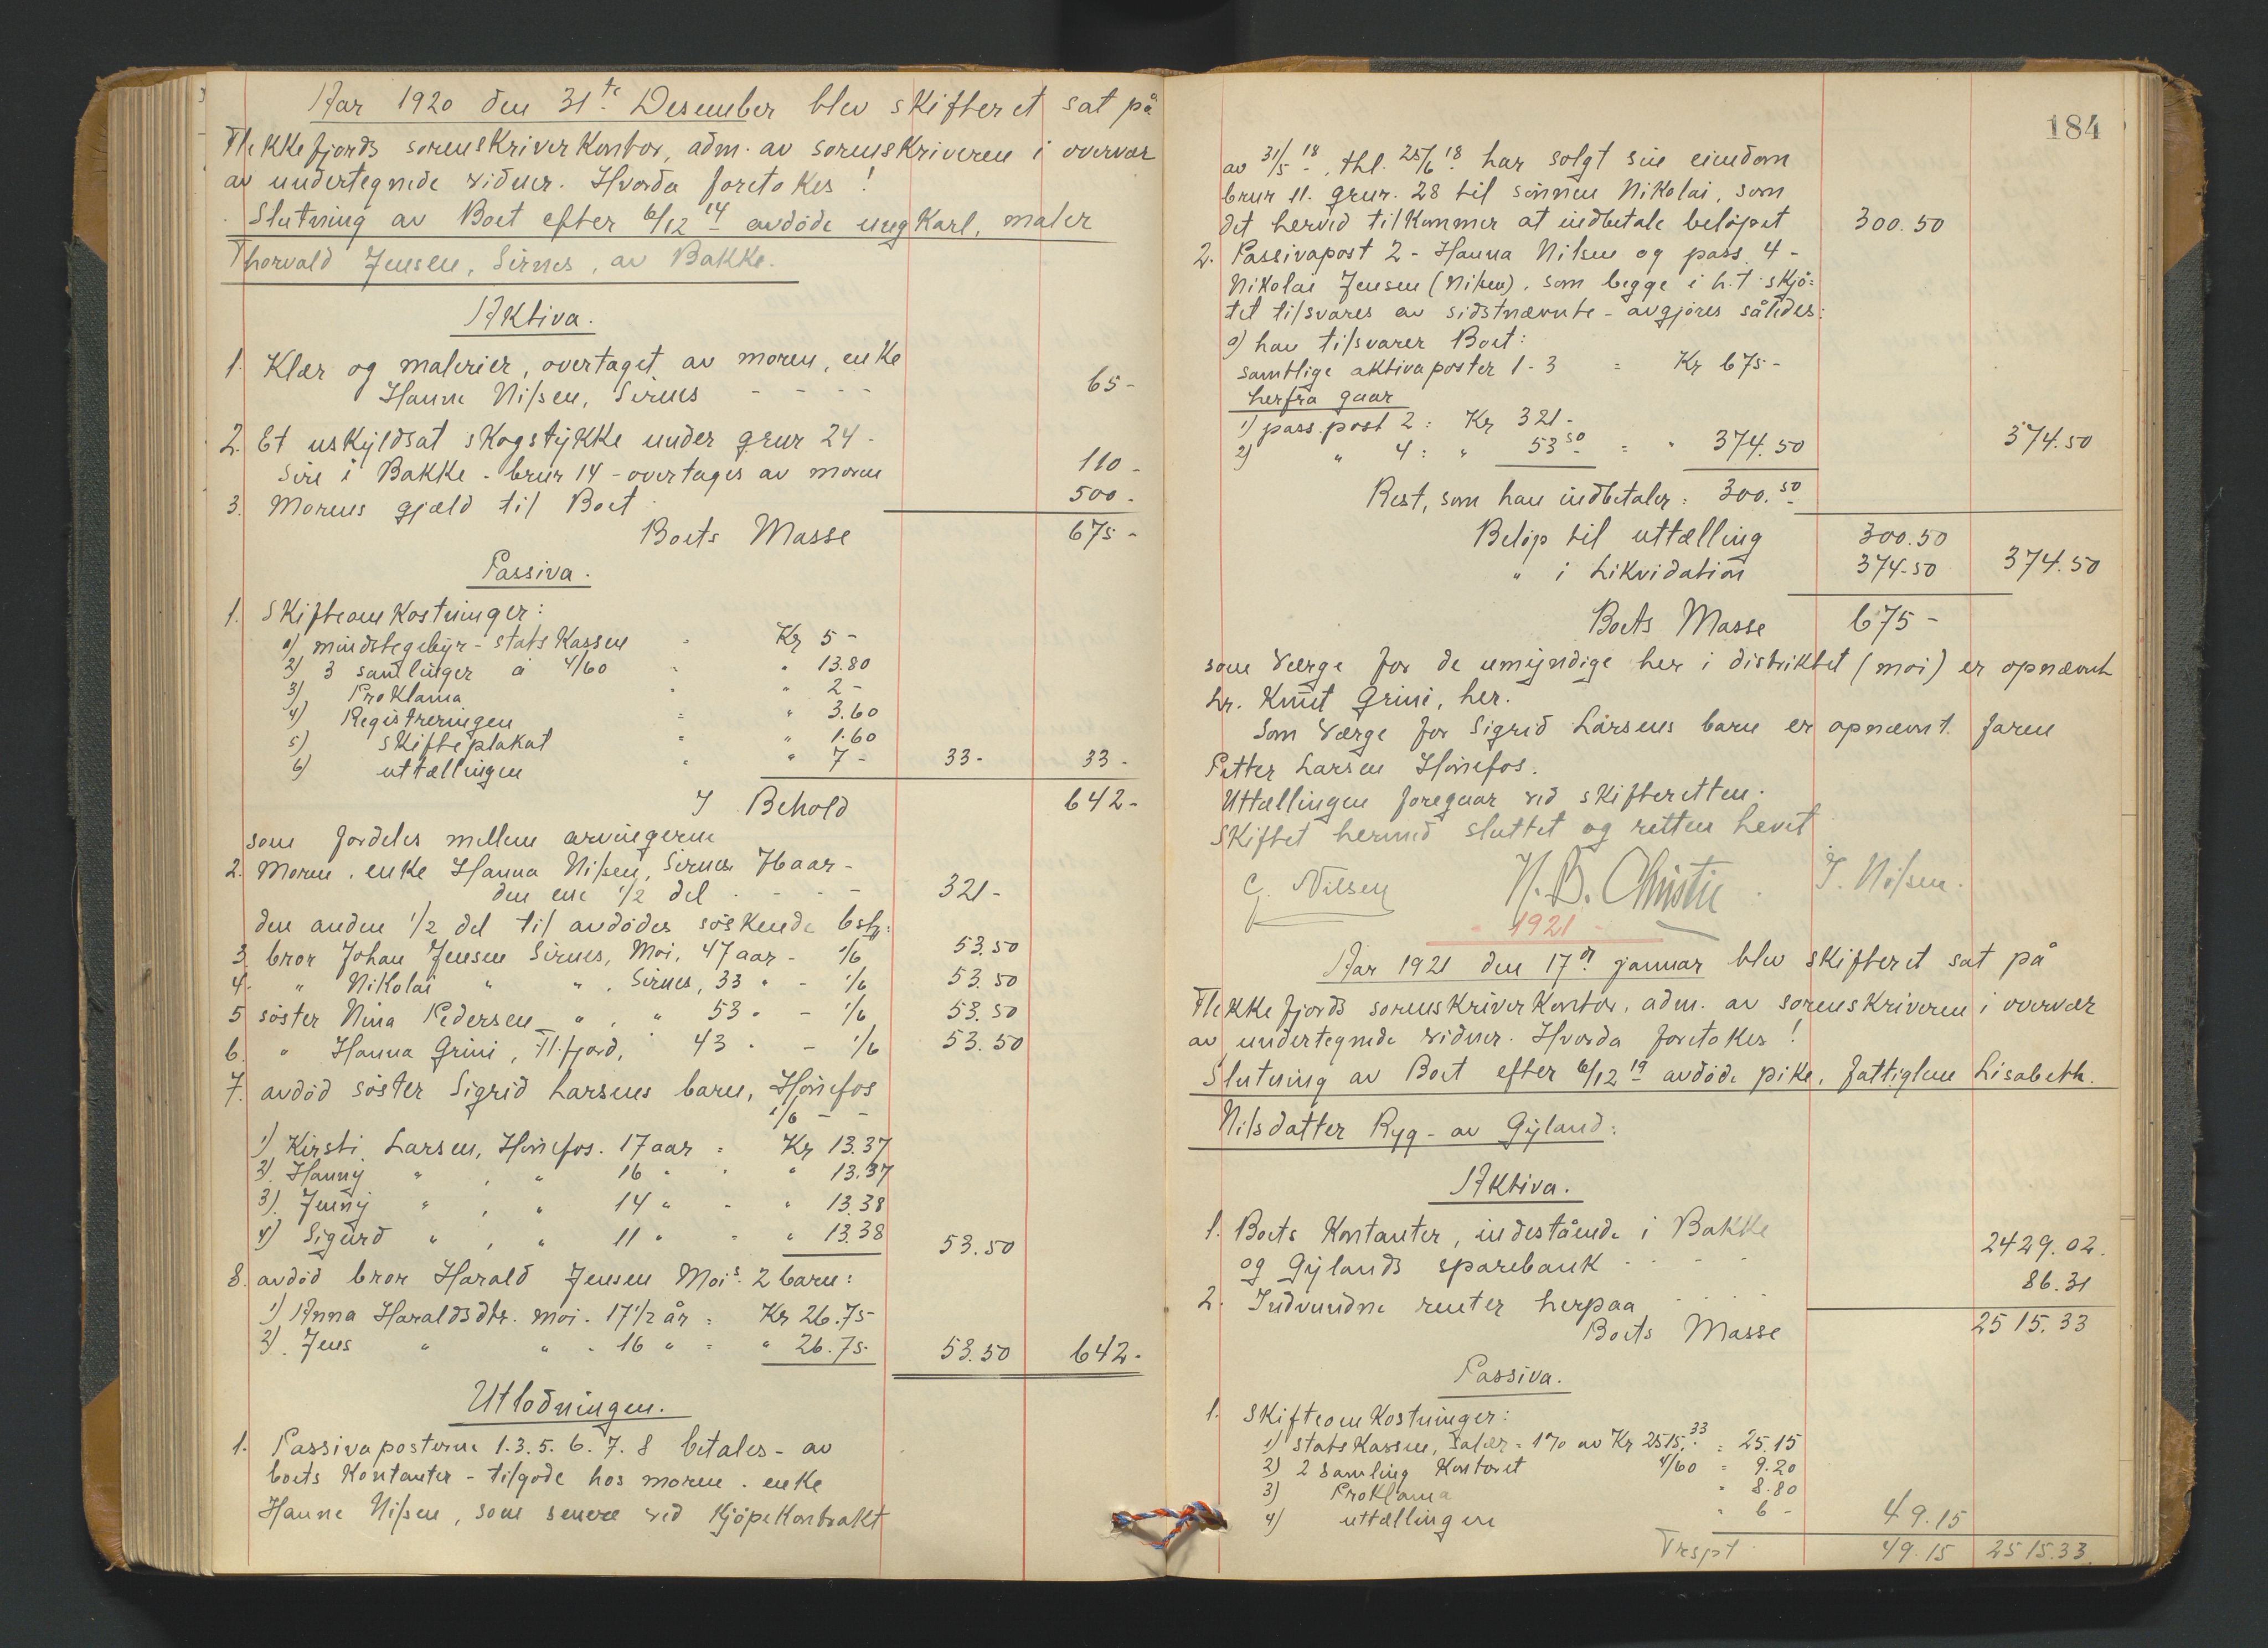 Aar 1920 den 31te Desember blev skifteret sat på
Flekkefjords sorenskriverkontor, adm. av sorenskriveren i overvær
av undertegnede vidner. Hvorda foretokes!
Slutning av Boet efter 6/12 14 avdöde ungkarl, maler
Thorvald Jensen, Sirnes, av Bakke.
Aktiva.
1. Klær og malerier, overtaget av moren, enke
Hanne Nilsen, Sirnes - - - - 65-
2. Et uskyldsat skogstykke under grnr 24-
Sire i Bakke - brnr 14 - overtages av moren 110-
3. Morens gjæld til Boet 500-
Boets Masse 675-
Passiva.
1. Skifteomkostninger:
1) mindstegebyr - statskassen = Kr 5-
2) 3 samlinger á 4/60 = " 13.80
3) Proklama " " 2-
4) Registreringen = " 3.60
5) Skifteplakat = " 1.60
6) uttællingen " " 7- 33- 33-
I Behold 642-
som fordeles mellem arvingerne
2. Moren, enke Hanna Nilsen, Sirnes
den ene 1/2 del - - - - 321-
den anden 1/2 del til avdödes söskende
3. bror Johan Jensen Sirnes, Moi, 47 aar - 1/6 53.50
4. " Nikolai " " . Sirnes, 33 " - 1/6 53.50
5 söster Nina Pedersen " , " 53 " - 1/6 53.50
6. " Hanna Grini, Fl.fjord, 43 " - 1/6 53.50
7. avdöd söster Sigrid Larsens barn, Hönefos
1/6 - -
1) Kirsti Larsen, Hönefos. 17 aar = Kr 13.37
2) Hanny " , " 16 " " " 13.37
3) Jenny " , " 14 " - " 13.38
4) Sigurd " , " 11 " = " 13.38 53.50
8. avdöd bror Harald Jensen Mois 2 barn:
1) Anna Haraldsdtr. Moi. 17 1/2 år = Kr 26.75
2) Jens " " - 16 " = " 26.75. 53.50 642-
Utlodningen.
1. Passivaposterne 1.3.5.6.7.8 betales - av
boets Kontanter - tilgode hos moren, enke
Hanne Nilsen, som senere ved Kjöpekontrakt
184
av 31/5 18 , thl. 25/6 18 har solgt sin eiendom
brnr 11. grnr. 28 til sönnen Nikolai, som
det herved tilkommer at indbetale belöpet 300.50
2. Passivapost 2 - Hanna Nilsen og pass. 4 -
Nikolai Jensen (Nilsen), som begge i h.t. skjö=
tet tilsvares av sidstnævnte - avgjöres således:
a) han tilsvarer Boet:
samtlige aktivaposter 1-3 = Kr 675-
herfra gaar
1) pass.post 2: Kr 321-
2) " 4: " 53 50 = " 374.50 374.50
Rest, som han indbetaler: 300.50
Belöp til uttælling 300.50
" i Likvidation 374.50 374.50
Boets Masse 675-
som Værge for de umyndige her i distriktet (Moi) er opnævnt
hr. Knut Grini, her.
Som Værge for Sigrid Larsens barn er opnævnt faren
Petter Larsen Hönefos.
Uttællingen foregaar ved skifteretten.
Skiftet hermed sluttet og retten hevet
G. Nilsen H. B. Christie. J. Nilsen.
- 1921 -
Aar 1921 den 17de januar blev skifteret sat på
Flekkefjords sorenskriverkontor, adm. av sorenskriveren i overvær
av undertegnede vidner. Hvorda foretokes!
Slutning av Boet efter 6/12 19 avdöde pike, fattiglem Lisabeth
Nilsdatter Ryg - av Gyland:
Aktiva.
1. Boets Kontanter, indestående i Bakke
og Gylands sparebank - - - - 2429.02.
2. Indvundne renter herpaa - - - - 86.31
Boets Masse 2515.33
Passiva.
1. Skifteomkostninger:
1) statskassen, salær = 1% av Kr 2515.33 = 25.15
2) 2 samling Kontoret 4/60 = 9.20
3) Proklama " 8.80
4) uttællingen " 6- 49.15
Trspt 49.15 2515.33.